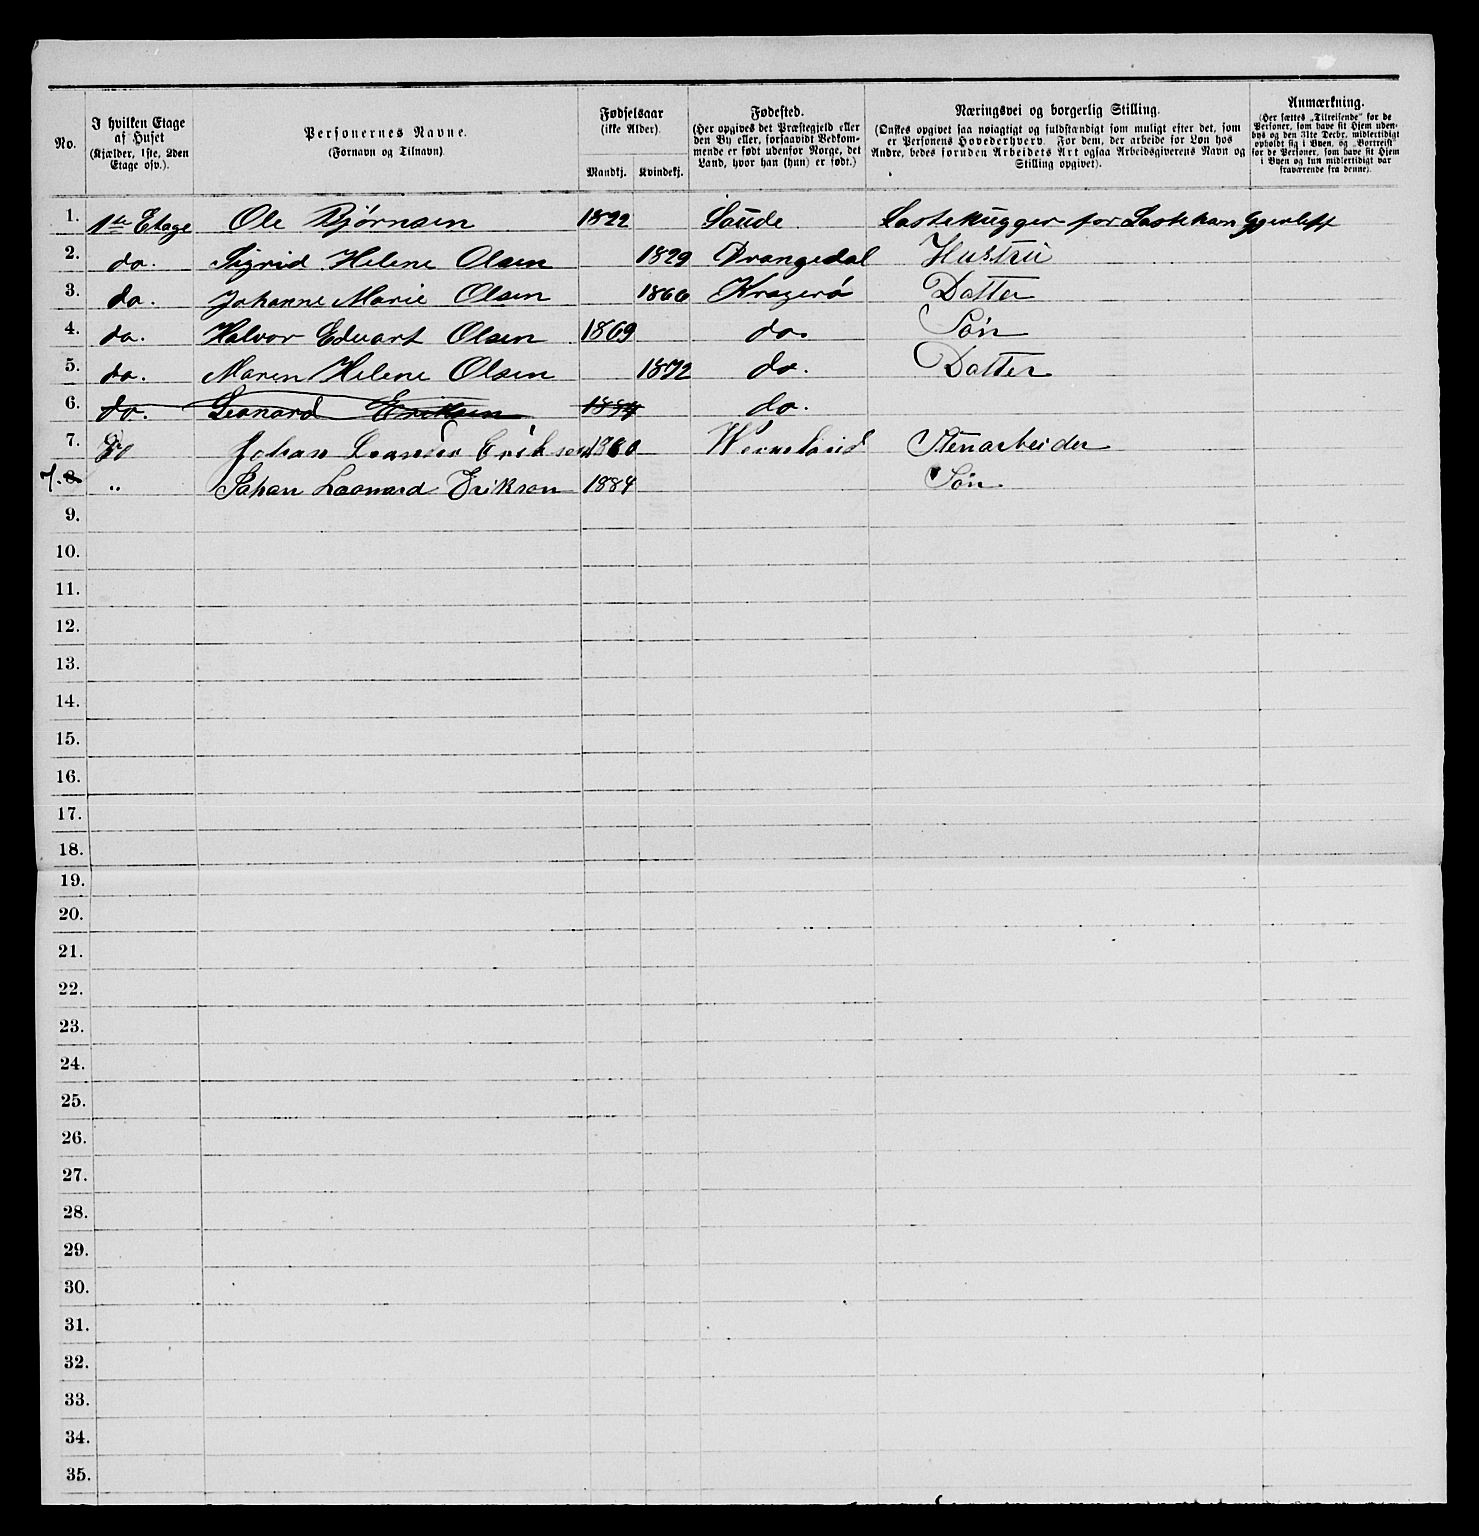 No.
I hvilken Etage af Huset (Kjælder, 1ste, 2den Etage osv.).
Personernes Navne.
(Fornavn og Tilnavn).
Fødselsaar
(ikke Alder).
Mandkj. Kvindekj.
Fødested.
(Her opgives det Præstegjeld eller
den By eller, forsaavidt Vedkom-
mende er født udenfor Norge, det
Land, hvor han (hun) er født.)
Næringsvei og borgerlig Stilling.
(Ønskes opgivet saa nøiagtigt og fuldstændigt som muligt efter det, som
er Personens Hovederhverv. For dem, der arbeide for Løn hos
Andre, bedes foruden Arbeidets Art ogsaa Arbeidsgiverens Navn og
Stilling opgivet).
Anmærkning.
(Her sættes „Tilreisende“ for de
Personer, som have sit Hjem uden-
bys og den 31te Decbr. midlertidigt
opholdt sig i Byen, og „Bortreist“
for de Personer, som have sit Hjem
i Byen og kun midlertidigt var
fraværende fra denne).
1. 1ste Etage Ole Bjørnsen 1822 Saude
2. do. Sigrid Helene Olsen 1829 Drangedal Hustru
3. do. Johanne Marie Olsen 1866 Kragerø Datter
4. do. Halvor Edvart Olsen 1869 do. Søn
5. do. Maren Helene Olsen 1872 do. Datter
6. do. Leonard Eriksen 1884 do.
7. Do Johan Leander Eriksen 1860 Wermeland Stenarbeider
7. 8. „ Johan Leonard Erikson 1884 Søn
9.
10.
11.
12.
13.
14.
15.
16.
17.
18.
19.
20.
21.
22.
23.
24.
25.
26.
27.
28.
29.
30.
31.
32.
33.
34.
35.